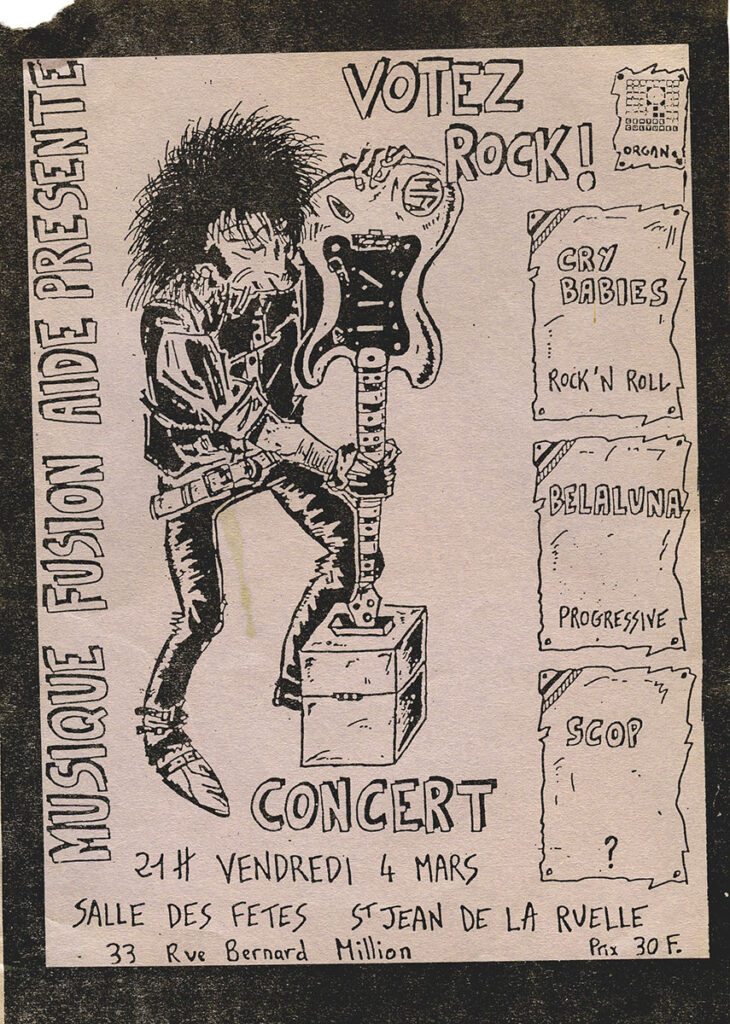 MUSIQUE FUSION AIDE PRESENTE
VOTEZ
ROCK!
CENTRE
CULTUREL
ORGAN.
CRY
BABIES
ROCK'N ROLL
BELALUNA
PROGRESSIVE
SCOP
?
CONCERT
21H VENDREDI 4 MARS
SALLE DES FETES ST JEAN DE LA RUELLE
33 Rue Bernard Million
Prix 30 F.